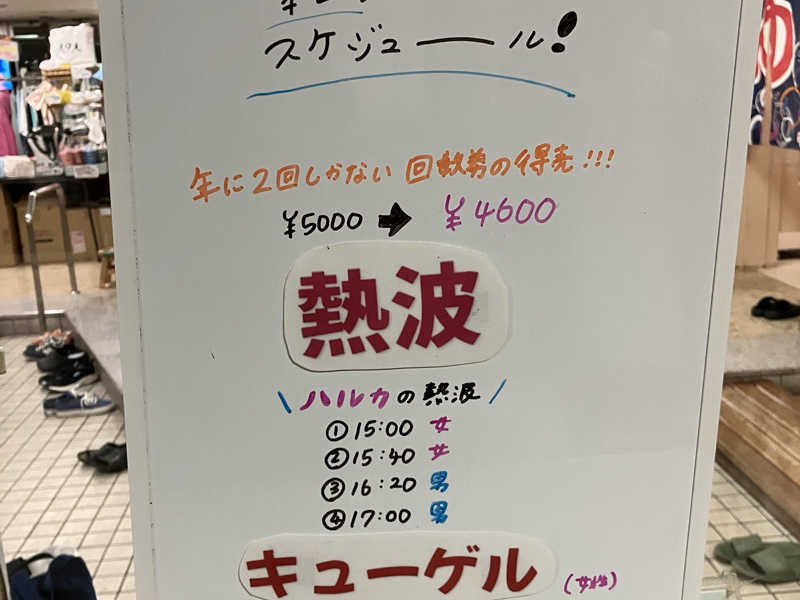 スケジュール!
年に2回しかない 回数券の得売!!!
¥5000 → ¥4600
熱波
\ ハルカの熱波 /
①15:00 女
②15:40 女
③16:20 男
④17:00 男
キューゲル (女性)